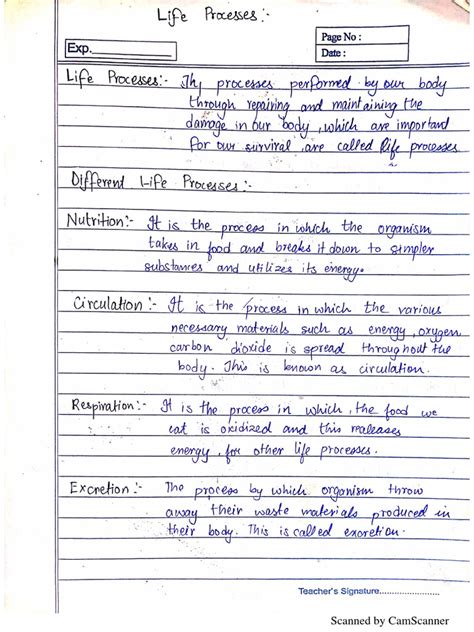 Life Processes:-
Page No :
Exp.
Date :
Life Processes:- Thy processes performed by our body
through repairing and maintaining the
damage in our body, which are important
for our survival are called life processes
Different Life Processes:-
Nutrition:- It is the process in which the organism
takes in food and breaks it down to simpler
substances and utilizes its energy.
Circulation:- It is the process in which the various
necessary materials such as energy, oxygen
carbon dioxide is spread throughout the
body. This is known as circulation.
Respiration:- It is the process in which, the food we
eat is oxidized and this realeases
energy, for other life processes.
Excretion:- The process by which organism throw
away their waste materials produced in
their body. This is called excretion.
Teacher's Signature..................
Scanned by CamScanner